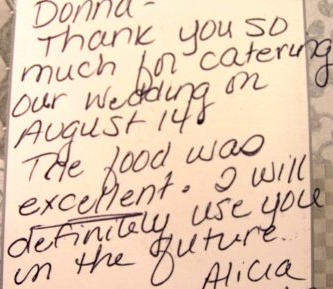 Donna-
Thank you so
much for catering
our wedding on
August 14.
The food was
excellent. I will
definitely use you
in the future.
Alicia